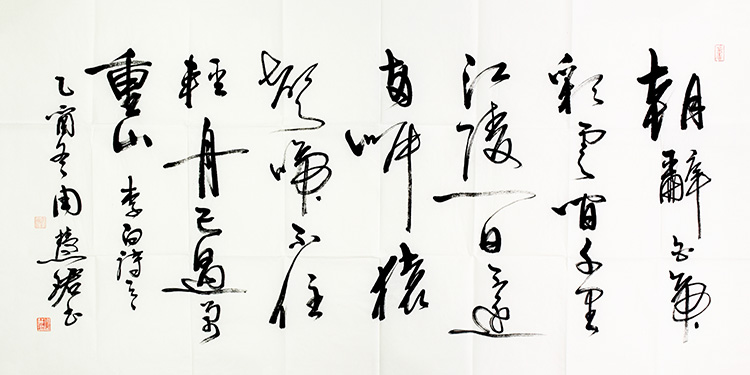 朝辭白帝
彩雲間千里
江陵一日還
兩岸猿
聲啼不住
輕舟已過萬
重山 李白詩
乙酉冬周慧珺书